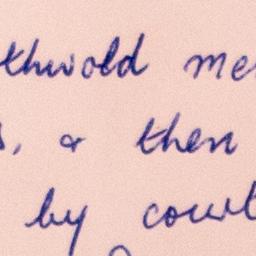 thwold me
s, & then
by cout